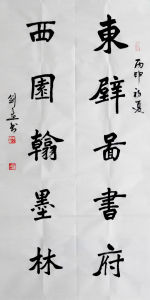 東壁啚書府
西園翰墨林
丙申初夏